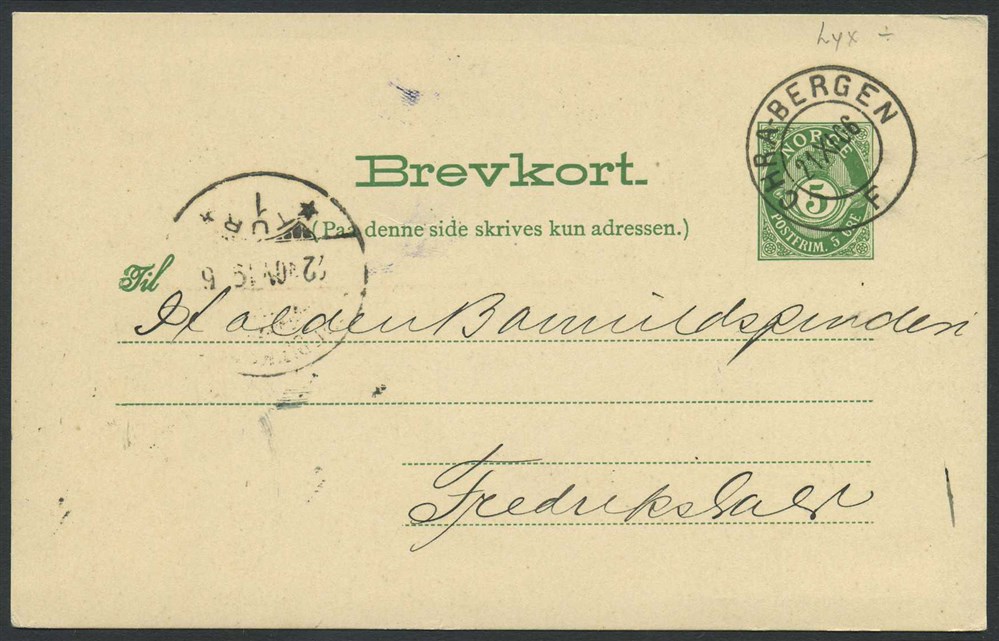 Lyx ÷
CHRA-BERGEN
21 XI 06
F
NORGE
5
POSTFRIM. 5 ØRE
Brevkort.
(Paa denne side skrives kun adressen.)
TUR
1
Til
Halden Bomuldspinderi
Fredrikshald